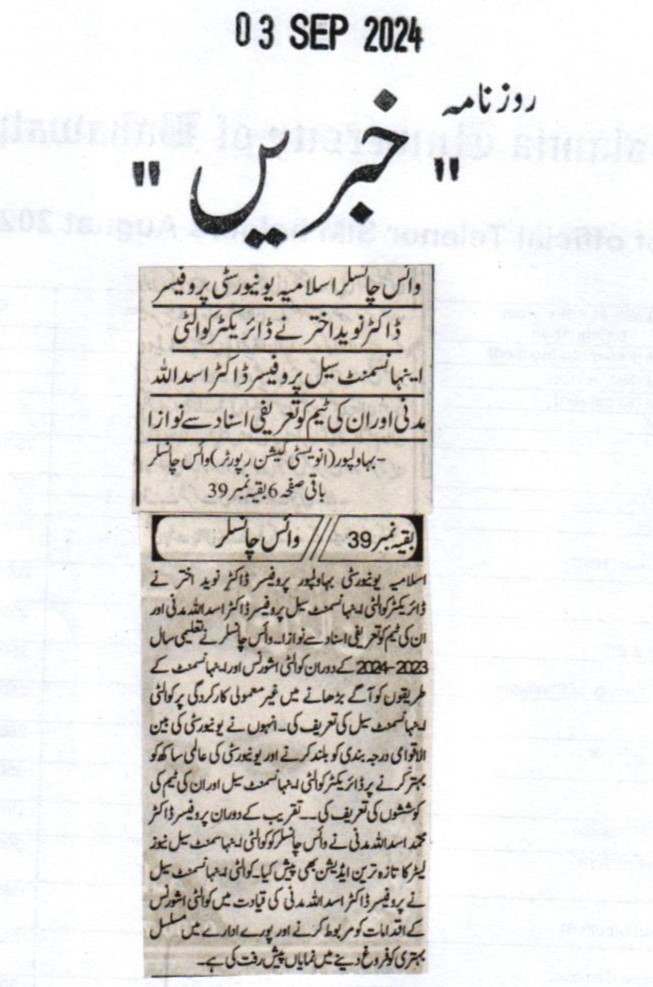 03 SEP 2024
روزنامہ
"خبریں"
وائس چانسلر اسلامیہ یونیورسٹی پروفیسر
ڈاکٹر نوید اختر نے ڈائریکٹر کوالٹی
اینہانسمنٹ سیل پروفیسر ڈاکٹر اسد اللہ
مدنی اور ان کی ٹیم کو تعریفی اسناد سے نوازا
بہاولپور (انویسٹی گیشن رپورٹر) وائس چانسلر
باقی صفحہ 6 بقیہ نمبر 39
بقیہ نمبر 39 /// وائس چانسلر
اسلامیہ یونیورسٹی بہاولپور پروفیسر ڈاکٹر نوید اختر نے
ڈائریکٹر کوالٹی اینہانسمنٹ سیل پروفیسر ڈاکٹر اسد اللہ مدنی اور
ان کی ٹیم کو تعریفی اسناد سے نوازا۔ وائس چانسلر نے تعلیمی سال
2023-2024 کے دوران کوالٹی اشورنس اور اینہانسمنٹ کے
طریقوں کو آگے بڑھانے میں غیر معمولی کارکردگی پر کوالٹی
اینہانسمنٹ سیل کی تعریف کی۔ انہوں نے یونیورسٹی کی بین
الاقوامی درجہ بندی کو بلند کرنے اور یونیورسٹی کی عالمی ساکھ کو
بہتر کرنے پر ڈائریکٹر کوالٹی اینہانسمنٹ سیل اور ان کی ٹیم کی
کوششوں کی تعریف کی۔۔ تقریب کے دوران پروفیسر ڈاکٹر
محمد اسد اللہ مدنی نے وائس چانسلر کو کوالٹی اینہانسمنٹ سیل نیوز
لیٹر کا تازہ ترین ایڈیشن بھی پیش کیا۔ کوالٹی اینہانسمنٹ سیل
نے پروفیسر ڈاکٹر اسد اللہ مدنی کی قیادت میں کوالٹی اشورنس
کے اقدامات کو مربوط کرنے اور پورے ادارے میں مسلسل
بہتری کو فروغ دینے میں نمایاں پیش رفت کی ہے۔